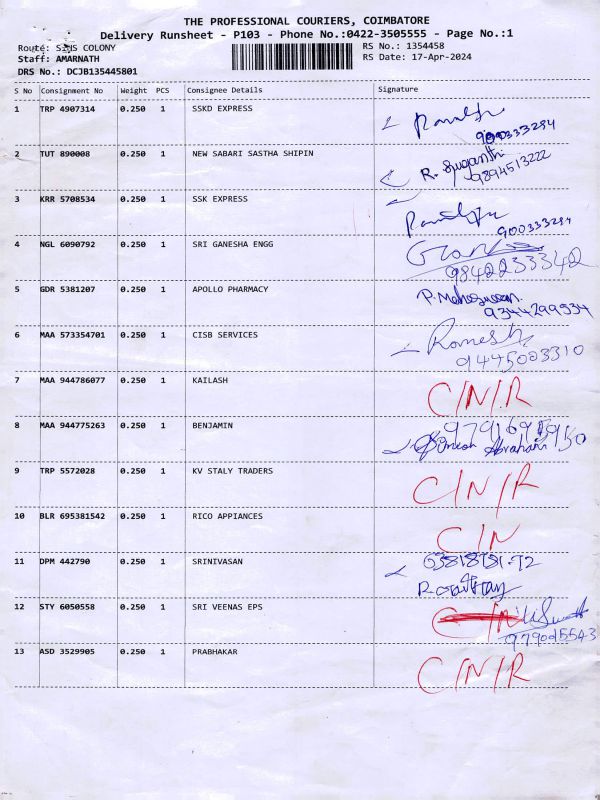 THE PROFESSIONAL COURIERS, COIMBATORE
Delivery Runsheet - P103 - Phone No.:0422-3505555 - Page No.:1
Route: SIMS COLONY RS No.: 1354458
Staff: AMARNATH RS Date: 17-Apr-2024
DRS No.: DCJB135445801
S No Consignment No Weight PCS Consignee Details Signature
1 TRP 4907314 0.250 1 SSKD EXPRESS
900333284
2 TUT 890008 0.250 1 NEW SABARI SASTHA SHIPIN
R. Suganthi
9894513222
3 KRR 5708534 0.250 1 SSK EXPRESS
900333284
4 NGL 6090792 0.250 1 SRI GANESHA ENGG
9842233342
5 GDR 5381207 0.250 1 APOLLO PHARMACY
P. Maheswaran
9344299534
6 MAA 573354701 0.250 1 CISB SERVICES
Ramesh
9445003310
7 MAA 944786077 0.250 1 KAILASH C/N/R
8 MAA 944775263 0.250 1 BENJAMIN
Abraham
9 TRP 5572028 0.250 1 KV STALY TRADERS C/N/R
10 BLR 695381542 0.250 1 RICO APPIANCES C/N
11 DPM 442790 0.250 1 SRINIVASAN
12 STY 6050558 0.250 1 SRI VEENAS EPS
13 ASD 3529905 0.250 1 PRABHAKAR C/N/R